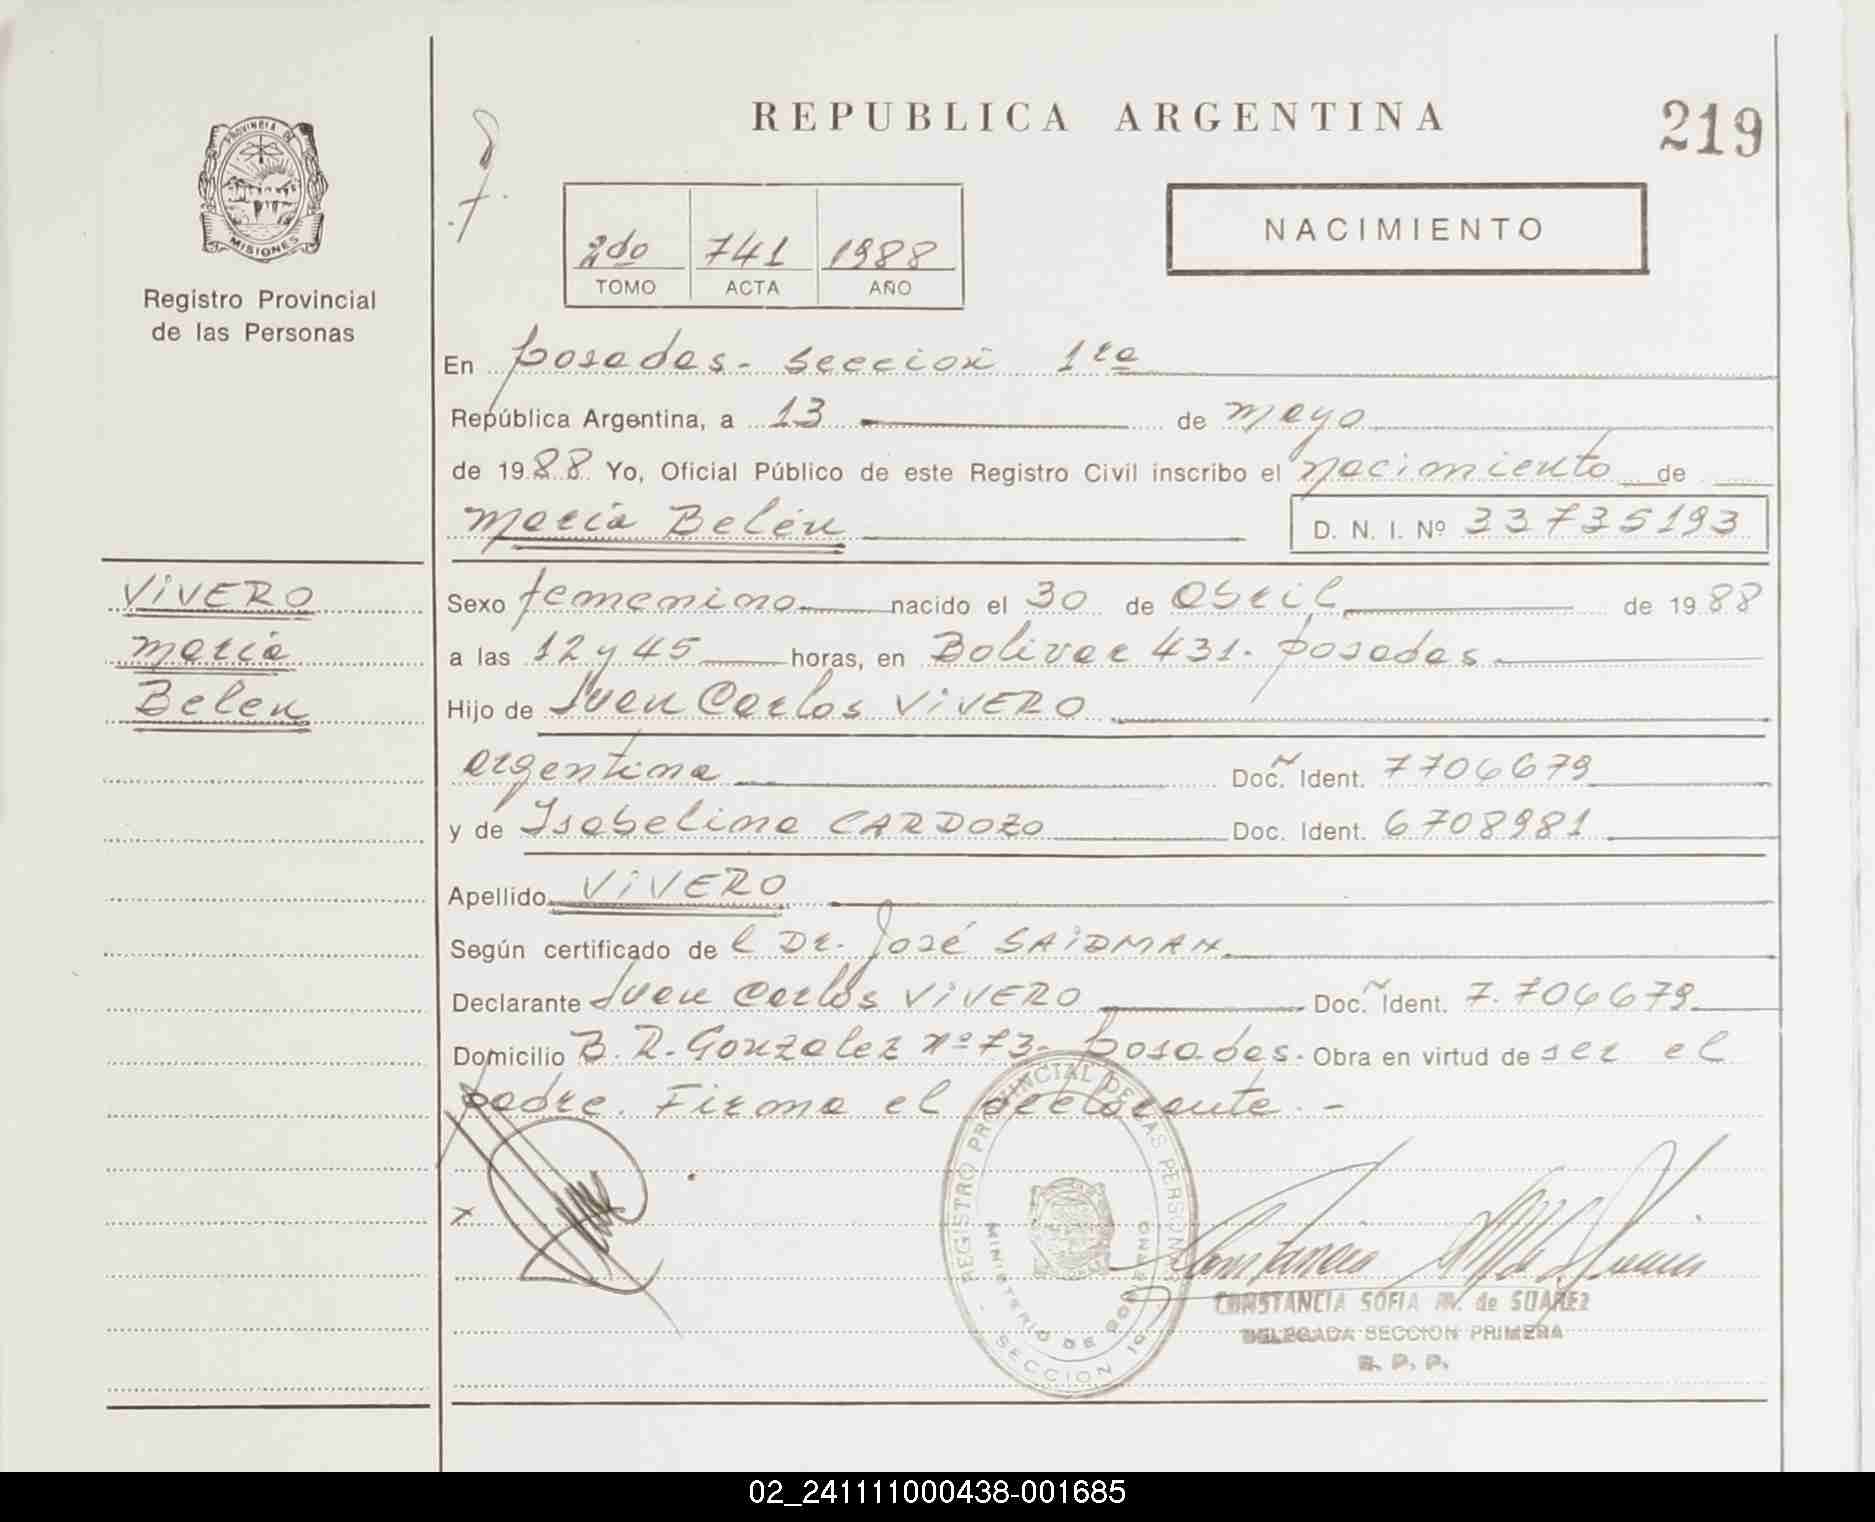 REPUBLICA ARGENTINA
219
PROVINCIA DE
MISIONES
Registro Provincial
de las Personas
2do 741 1988
TOMO ACTA AÑO
NACIMIENTO
En Posadas - Sección 1ra
República Argentina, a 13 de mayo
de 1988 Yo, Oficial Público de este Registro Civil inscribo el nacimiento de
María Belén D. N. I. Nº 33735193
VIVERO
María
Belen
Sexo femenino nacido el 30 de Abril de 1988
a las 12 y 45 horas, en Bolivar 431. Posadas
Hijo de Juan Carlos VIVERO
argentina Doc. Ident. 7706679
y de Isabelina CARDOZO Doc. Ident. 6708981
Apellido VIVERO
Según certificado de l Dr. José SAIDMAN
Declarante Juan Carlos VIVERO Doc. Ident. 7.706679
Domicilio B. R. Gonzalez nº 73 - Posadas. Obra en virtud de ser el
padre. Firma el declarante. -
REGISTRO PROVINCIAL DE LAS PERSONAS
MINISTERIO DE GOBIERNO
SECCION 1º
CONSTANCIA SOFIA M. de SUAREZ
DELEGADA SECCION PRIMERA
R. P. P.
02_241111000438-001685